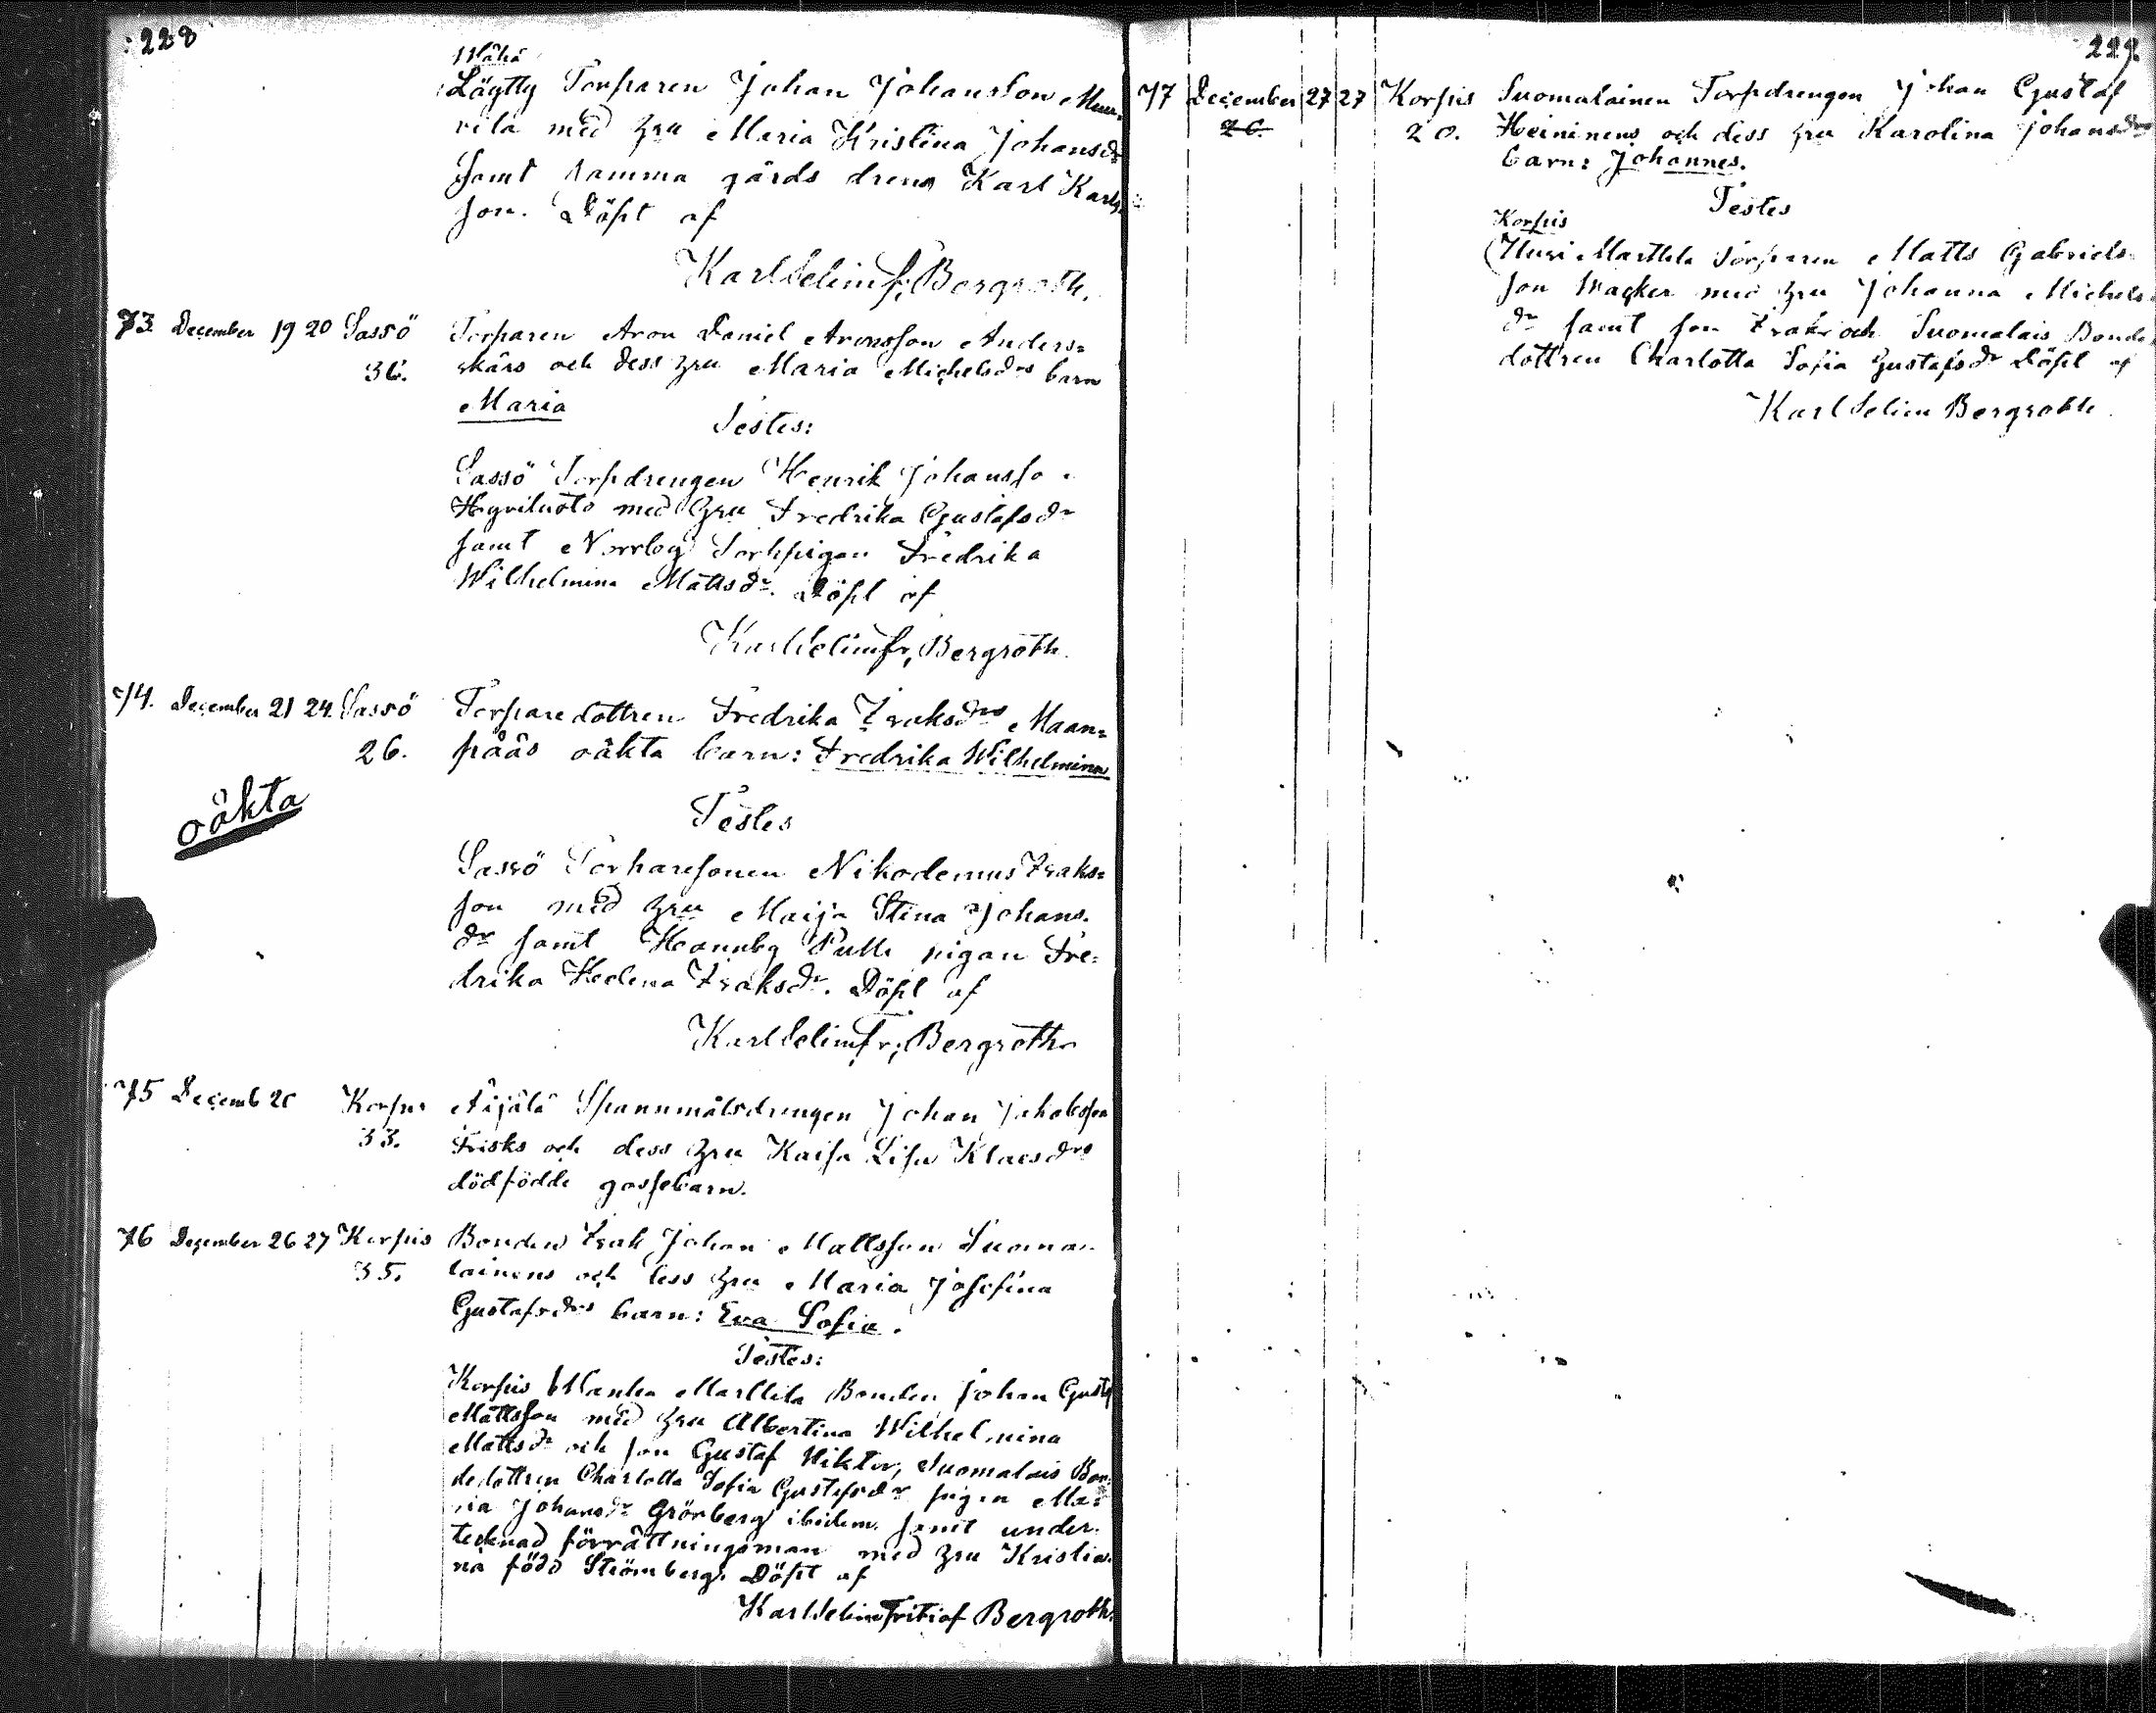 228
Wähä
Löytty Torparen Johan Johansson Muu-
rila med hru Maria Kristina Johansdr
samt samma gårds dreng Karl Karls-
son. Döpt af
Karl Selim Fr. Bergroth.
73. December 19 20 Sassö Torparen Aron Daniel Aronsson Anders=
36. skärs och dess hru Maria Michelsdrs barn
Maria
Testes:
Sassö Torpdrengen Henrik Johansso
med hru Fredrika Gustafsdr
samt Norrby Torppigan Fredrika
Wilhelmina Mattsdr. Döpt af
Karl Selim Fr. Bergroth.
74. December 21 24. Sassö Torparedottren Fredrika Isaksdrs Maan=
26. pääs oäkta barn: Fredrika Wilhelmina
oäkta
Testes
Sassö Torparesonen Nikodemus Isaks=
son med hru Maija Stina Johans-
dr samt Hannby Pulli pigan Fre=
drika Helena Isaksdr. Döpt af
Karl Selim Fr. Bergroth
75 Decemb 26 Korpis Äijälä Spannmålsdrengen Johan Jakobsson
33. Frisks och dess hru Kaisa Lisa Klaesdrs
dödfödde gossebarn.
76 December 26 27 Korpis Bonden Isak Johan Mattsson Suoma-
35. lainens och dess hru Maria Josefina
Gustafsdrs barn: Eva Sofia.
Testes:
Korpis Wanha Marttila Bonden Johan Gustf
Mattsson med hru Albertina Wilhelmina
Mattsdr och son Gustaf Wiktor, Suomalais Bon-
dedottren Charlotta Sofia Gustafsdr pigan Ma=
ria Johansdr Grönberg ibidem samt under-
tecknad förrättningsman med hru Kristia-
na född Strömberg. Döpt af
Karl Selim Fritiof Bergroth.
229.
77 December 27 27 Korpis Suomalainen Torpdrengen Johan Gustaf
20. Heininens och dess hru Karolina Johansdrs
barn: Johannes.
Testes
Korpis
Uusi Marttila Torparen Matts Gabriels-
son Wacker med hru Johanna Michels-
dr samt son Isak och Suomalais Bonde
dottren Charlotta Sofia Gustafsdr Döpt af
Karl Selim Bergroth.